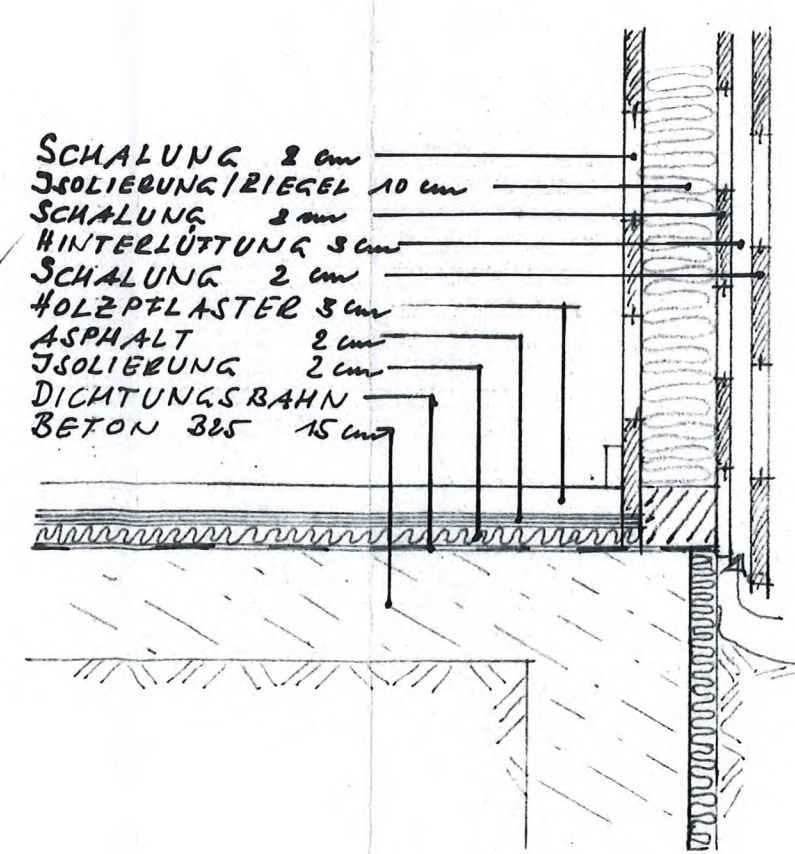 SCHALUNG 2 cm
ISOLIERUNG/ZIEGEL 10 cm
SCHALUNG 2 cm
HINTERLÜFTUNG 3 cm
SCHALUNG 2 cm
HOLZPFLASTER 3 cm
ASPHALT 2 cm
ISOLIERUNG 2 cm
DICHTUNGSBAHN
BETON B25 15 cm